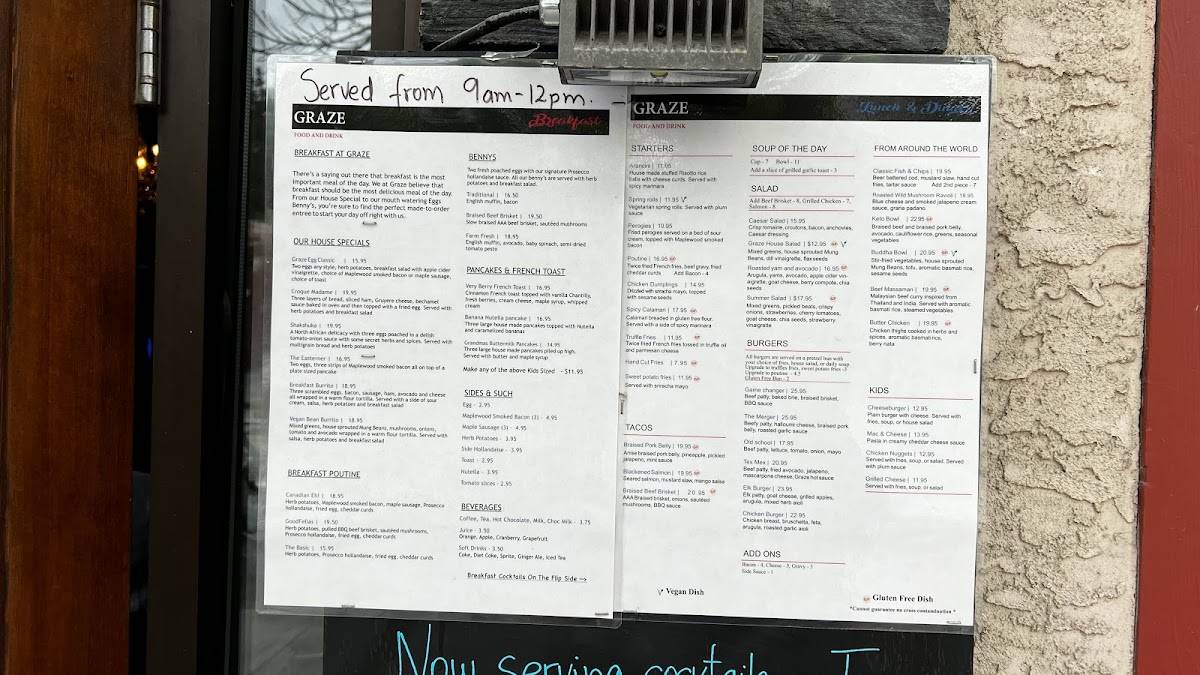 Served from 9am-12pm.
GRAZE
Breakfast
FOOD AND DRINK
BREAKFAST AT GRAZE
There's a saying out there that breakfast is the most
important meal of the day. We at Graze believe that
breakfast should be the most delicious meal of the day.
From our House Special to our mouth watering Eggs
Benny's, you're sure to find the perfect made-to-order
entree to start your day off right with us.
OUR HOUSE SPECIALS
Graze Egg Classic | 15.95
Two eggs any style, herb potatoes, breakfast salad with apple cider
vinaigrette, choice of Maplewood smoked bacon or maple sausage,
choice of toast
Croque Madame | 19.95
Three layers of bread, sliced ham, Gruyere cheese, bechamel
sauce baked in oven and then topped with a fried egg. Served with
herb potatoes and breakfast salad
Shakshuka | 19.95
A North African delicacy with three eggs poached in a delish
tomato-onion sauce with some secret herbs and spices. Served with
multigrain bread and herb potatoes
The Easterner | 16.95
Two eggs, three strips of Maplewood smoked bacon all on top of a
plate sized pancake
Breakfast Burrito | 18.95
Three scrambled eggs, bacon, sausage, ham, avocado and cheese
all wrapped in a warm flour tortilla. Served with a side of sour
cream, salsa, herb potatoes and breakfast salad
Vegan Bean Burrito | 18.95
Mixed greens, house sprouted Mung Beans, mushrooms, onions,
tomato and avocado wrapped in a warm flour tortilla. Served with
salsa, herb potatoes and breakfast salad
BREAKFAST POUTINE
Canadian Eh! | 18.95
Herb potatoes, Maplewood smoked bacon, maple sausage, Prosecco
hollandaise, fried egg, cheddar curds
GoodFellas | 19.50
Herb potatoes, pulled BBQ beef brisket, sautéed mushrooms,
Prosecco hollandaise, fried egg, cheddar curds
The Basic | 15.95
Herb potatoes, Prosecco hollandaise, fried egg, cheddar curds
BENNYS
Two fresh poached eggs with our signature Prosecco
hollandaise sauce. All our benny's are served with herb
potatoes and breakfast salad.
Traditional | 16.50
English muffin, bacon
Braised Beef Brisket | 19.50
Slow braised AAA beef brisket, sautéed mushrooms
Farm Fresh | 18.95
English muffin, avocado, baby spinach, semi-dried
tomato pesto
PANCAKES & FRENCH TOAST
Very Berry French Toast | 16.95
Cinnamon French toast topped with vanilla Chantilly,
fresh berries, cream cheese, maple syrup, whipped
cream
Banana Nutella pancake | 16.95
Three large house made pancakes topped with Nutella
and caramelized bananas
Grandmas Buttermilk Pancakes | 14.95
Three large house made pancakes piled up high.
Served with butter and maple syrup
Make any of the above Kids Sized ~$11.95
SIDES & SUCH
Egg - 2.95
Maplewood Smoked Bacon (3) - 4.95
Maple Sausage (3) - 4.95
Herb Potatoes - 3.95
Side Hollandaise - 3.95
Toast - 2.95
Nutella - 3.95
Tomato slices - 2.95
BEVERAGES
Coffee, Tea, Hot Chocolate, Milk, Choc Milk - 3.75
Juice - 3.50
Orange, Apple, Cranberry, Grapefruit
Soft Drinks - 3.50
Coke, Diet Coke, Sprite, Ginger Ale, Iced Tea
Breakfast Cocktails On The Flip Side →
GRAZE
Lunch & Dinner
FOOD AND DRINK
STARTERS
Arancini | 11.95
House made stuffed Risotto rice
balls with cheese curds. Served with
spicy marinara
Spring rolls | 11.95
Vegetarian spring rolls. Served with plum
sauce
Perogies | 10.95
Fried perogies served on a bed of sour
cream, topped with Maplewood smoked
bacon
Poutine | 16.95
Twice fried French fries, beef gravy, fried
cheddar curds Add Bacon - 4
Chicken Dumplings | 14.95
Drizzled with sriracha mayo, topped
with sesame seeds
Spicy Calamari | 17.95
Calamari breaded in gluten free flour.
Served with a side of spicy marinara
Truffle Fries | 11.95
Twice fried French fries tossed in truffle oil
and parmesan cheese
Hand Cut Fries | 7.95
Sweet potato fries | 11.95
Served with sriracha mayo
TACOS
Braised Pork Belly | 19.95
Amie braised pork belly, pineapple, pickled
jalapeno, mint sauce
Blackened Salmon | 19.95
Seared salmon, mustard slaw, mango salsa
Braised Beef Brisket | 20.95
AAA Braised brisket, onions, sautéed
mushrooms, BBQ sauce
SOUP OF THE DAY
Cup - 7 Bowl - 11
Add a slice of grilled garlic toast - 3
SALAD
Add Beef Brisket - 8, Grilled Chicken - 7,
Salmon - 8
Caesar Salad | 15.95
Crisp romaine, croutons, bacon, anchovies,
Caesar dressing
Graze House Salad | $12.95
Mixed greens, house sprouted
Mung Beans, dill vinaigrette, flaxseeds
Roasted yam and avocado | 16.95
Arugula, yams, avocado, apple cider vin-
aigrette, goat cheese, berry compote, chia
seeds
Summer Salad | $17.95
Mixed greens, pickled beats, crispy
onions, strawberries, cherry tomatoes,
goat cheese, chia seeds, strawberry
vinaigrette
BURGERS
All burgers are served on a pretzel bun with
your choice of fries, house salad, or daily soup.
Upgrade to truffles fries, sweet potato fries -3
Upgrade to poutine - 4.5
Gluten Free Bun - 2
Game changer | 25.95
Beef patty, baked brie, braised brisket,
BBQ sauce
The Merger | 25.95
Beefy patty, halloumi cheese, braised pork
belly, roasted garlic sauce
Old school | 17.95
Beef patty, lettuce, tomato, onion, mayo
Tex Mex | 20.95
Beef patty, fried avocado, jalapeno,
mascarpone cheese, Graze hot sauce
Elk Burger | 23.95
Elk patty, goat cheese, grilled apples,
arugula, mixed herb aioli
Chicken Burger | 22.95
Chicken breast, bruschetta, feta,
arugula, roasted garlic aioli
ADD ONS
Bacon - 4, Cheese - 3, Gravy - 3
Side Sauce - 1
FROM AROUND THE WORLD
Classic Fish & Chips | 19.95
Beer battered cod, mustard slaw, hand cut
fries, tartar sauce Add 2nd piece - 7
Roasted Wild Mushroom Ravioli | 19.95
Blue cheese and smoked jalapeno cream
sauce, grana padano
Keto Bowl | 22.95
Braised beef and braised pork belly,
avocado, cauliflower rice, greens, seasonal
vegetables
Buddha Bowl | 20.95
Stir-fried vegetables, house sprouted
Mung Beans, tofu, aromatic basmati rice,
sesame seeds
Beef Massaman | 19.95
Malaysian beef curry inspired from
Thailand and India. Served with aromatic
basmati rice, steamed vegetables
Butter Chicken | 19.95
Chicken thighs cooked in herbs and
spices, aromatic basmati rice,
berry raita
KIDS
Cheeseburger | 12.95
Plain burger with cheese. Served with
fries, soup, or house salad
Mac & Cheese | 13.95
Pasta in creamy cheddar cheese sauce
Chicken Nuggets | 12.95
Served with fries, soup, or salad. Served
with plum sauce
Grilled Cheese | 11.95
Served with fries, soup, or salad
Vegan Dish
Gluten Free Dish
*Cannot guarantee no cross contamination *
Now serving cocktails